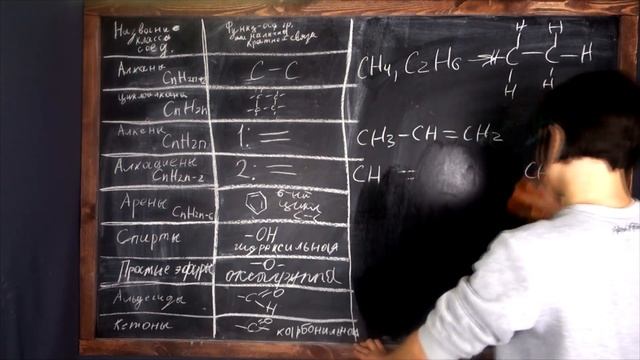 Название
класса
соед.
Функц-ая гр.
или наличие
кратной связи
Алканы
CnH2n+2
C – C
Циклоалканы
CnH2n
Алкены
CnH2n
1: =
Алкадиены
CnH2n-2
2: =
Арены
CnH2n-6
6-ый
цикл
C=C
Спирты
-OH
гидроксильная
Простые эфиры
-O-
оксогруппа
Альдегиды
-C=O
H
Кетоны
-C=O карбонильная
CH4, C2H6
H H
H-C-C-H
H H
CH3-CH=CH2
CH =